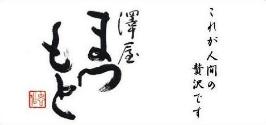 これが人間の
贅沢です
澤屋
まつ
もと